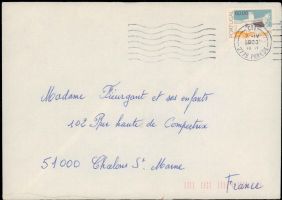 PORTUGAL
Madame Fleurgant et ses enfants
102 Rue haute de Compertrix
51000 Chalons S. Marne
France